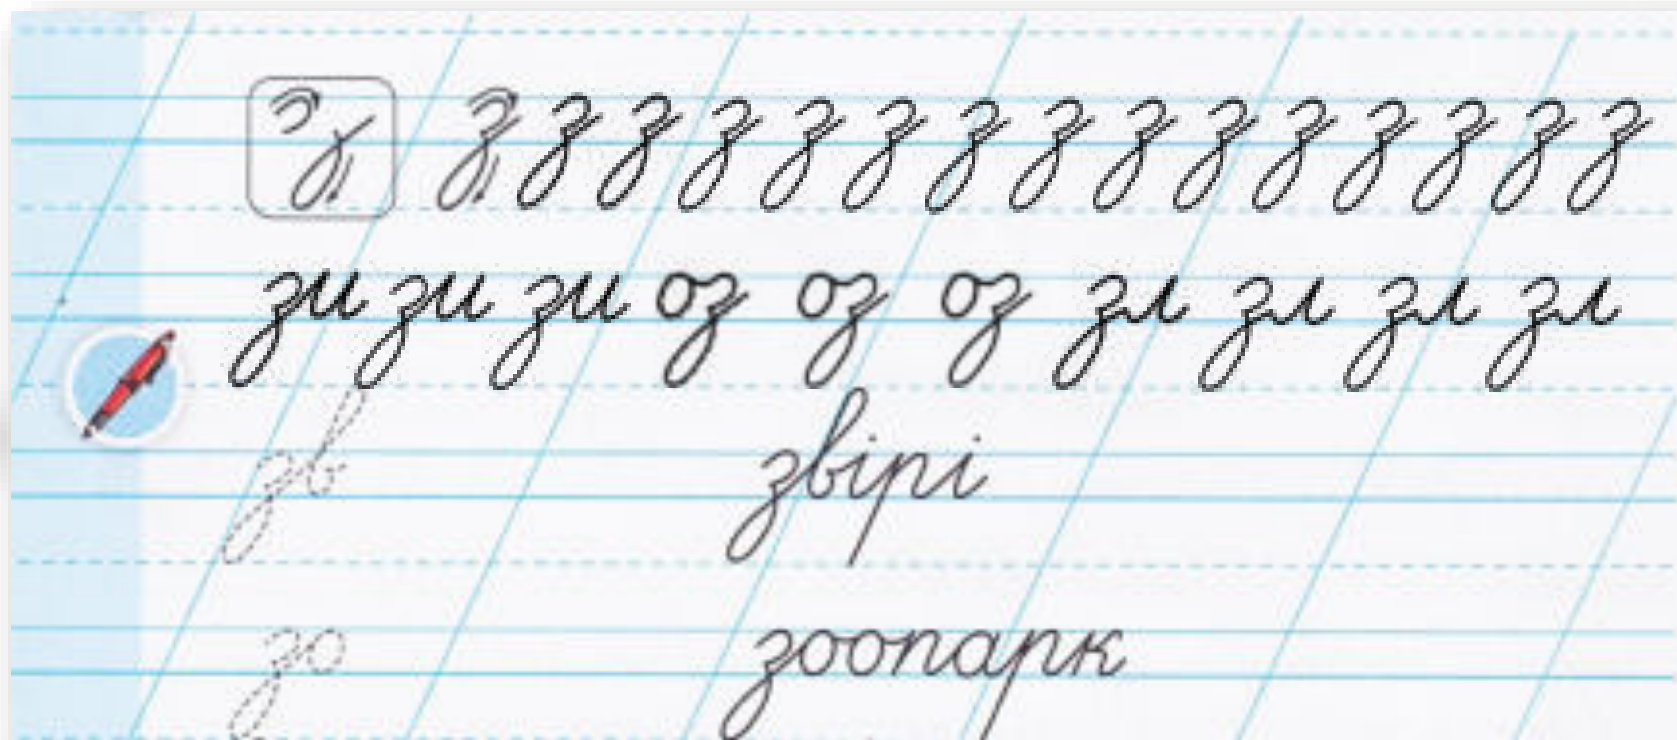 з з з з з з з з з з з з з з з з
зи зи зи оз оз оз зл зл зл зл
зв звірі
зо зоопарк